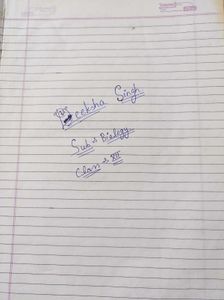 Deeksha Singh
Sub → Biology
Class → XII